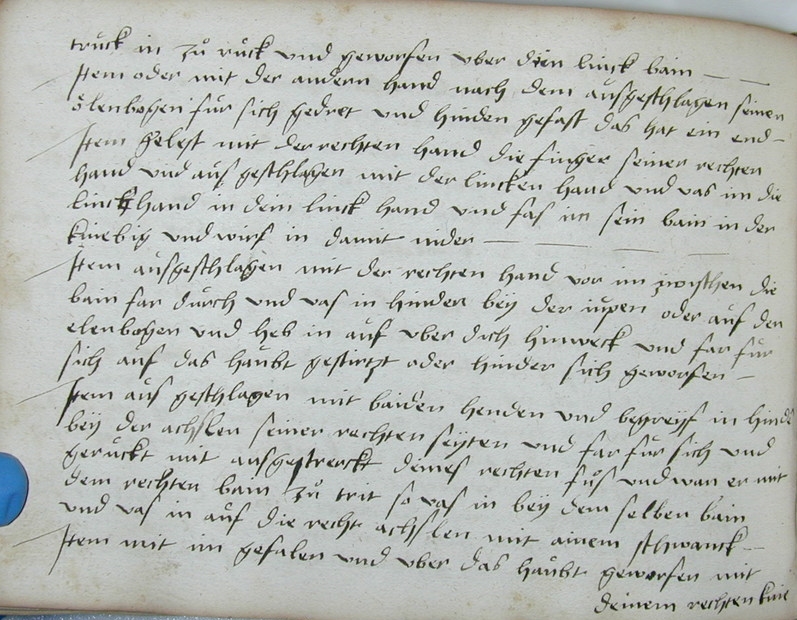 truck in zů ruck und geworfen uber dien linck bain — —
Item oder mit der andern hand nach dem ausgeschlagen seinen
olenbogen fur sich gedret und hinden gefast das hat ein end —
Item gelegt mit der rechten hand die finger seiner rechten
hand und aus geschlagen mit der lincken hand und vas im die
linck hand in dein linck hand und fas im sein bain in der
kniebig und wirf in damit nider — — — —
Item ausgeschlagen mit der rechten hand vor im zwischen die
bain far durch und vas in hinden bey der iupen oder auf den
elenbogen und heb in auf uber dich hinweck und far fur
sich auf das haubt gestirtzt oder hinder sich geworfen —
Item aus geschlagen mit baiden henden und begreyf in hinde
bey der achslen seiner rechten seyten und far fur sich und
geruckt mit ausgestreckt deines rechten fus und wan er mit
dem rechten bain zů trit so vas in bey dem selben bain
und vas in auf die recht achslen mit ainem schwanck —
Item mit im gefalen und uber das haubt geworfen mit
deinem rechten knie